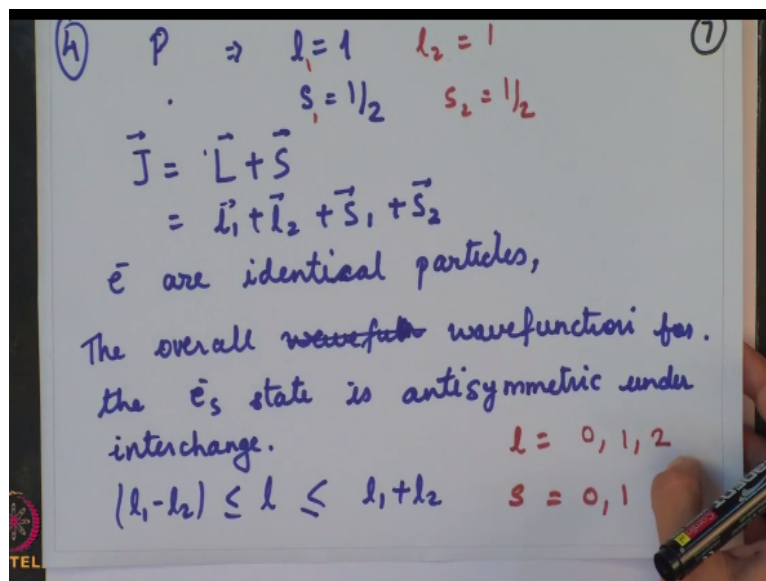 4 P ⇒ l₁ = 1 l₂ = 1 7
. s₁ = 1/2 s₂ = 1/2
J⃗ = L⃗ + S⃗
= l⃗₁ + l⃗₂ + S⃗₁ + S⃗₂
ē are identical particles,
The overall wavefunction for.
the ēs state is antisymmetric under
interchange. l = 0, 1, 2
(l₁-l₂) ≤ l ≤ l₁+l₂ s = 0, 1
TEL